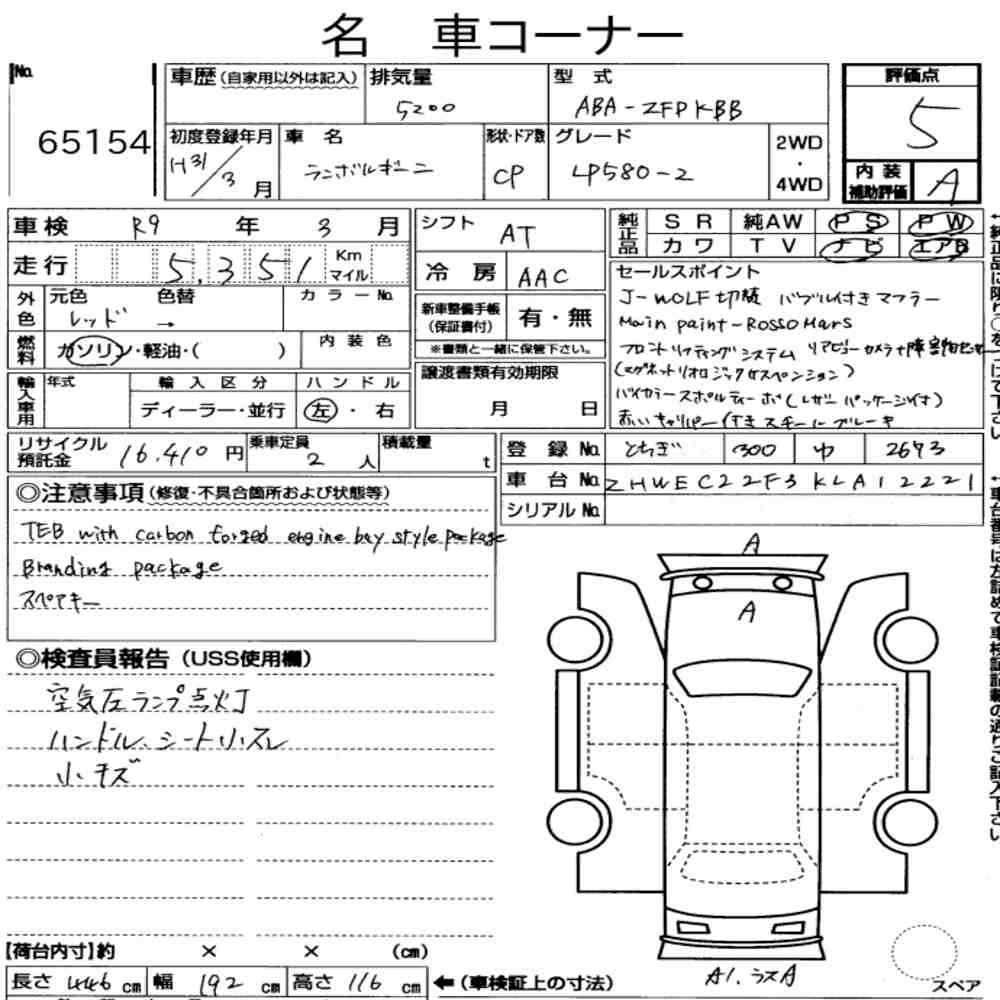 名 車コーナー
No.
65154
車歴(自家用以外は記入)
排気量
5200
型 式
ABA-ZFPKBB
評価点
5
初度登録年月
H31/3月
車 名
ランボルギーニ
形状・ドア数
CP
グレード
LP580-2
2WD
・
4WD
内装
補助評価
A
車検 R9 年 3 月
走行 5,351 Km マイル
シフト
AT
冷房 AAC
純正品
SR 純AW PS PW
カワ TV ナビ エアB
外色
元色
レッド
色替
→
カラーNo.
新車整備手帳
(保証書付)
有・無
※書類と一緒に保管下さい。
燃料
ガソリン・軽油・( )
内装色
セールスポイント
J-WOLF切替 バブル付きマフラー
Main paint-Rosso Mars
フロントリフティングシステム リアビューカメラ
(マグネットリオロジックサスペンション)
輸入車用
年式
輸入区分
ハンドル
ディーラー・並行
左・右
譲渡書類有効期限
月 日
リサイクル
預託金
16,410円
乗車定員
2人
積載量
t
登録No. とちぎ 300 ゆ 2693
車台No. ZHWEC22F3KLA12221
シリアルNo.
◎注意事項(修復・不具合箇所および状態等)
TEB with carbon forged engine bay style package
Branding package
スペアキー
◎検査員報告(USS使用欄)
空気圧ランプ点灯
ハンドル、シート小スレ
小キズ
A
A
A1.ラスA
スペア
【荷台内寸】約 × × (cm)
長さ 446 cm 幅 192 cm 高さ 116 cm
←(車検証上の寸法)